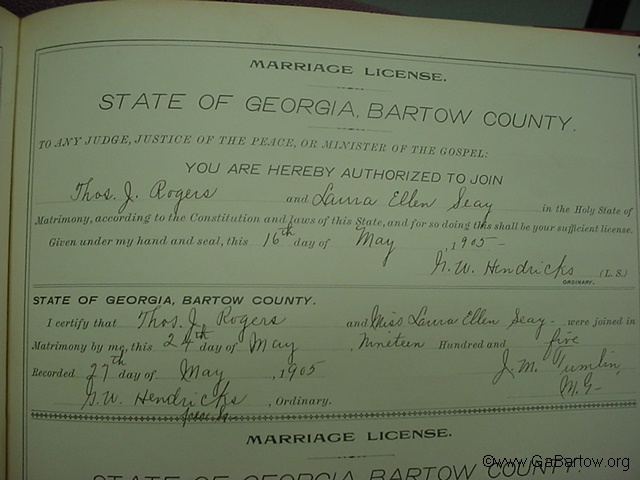 MARRIAGE LICENSE.
STATE OF GEORGIA, BARTOW COUNTY.
TO ANY JUDGE, JUSTICE OF THE PEACE, OR MINISTER OF THE GOSPEL:
YOU ARE HEREBY AUTHORIZED TO JOIN
Thos. J. Rogers and Laura Ellen Seay in the Holy State of
Matrimony, according to the Constitution and laws of this State, and for so doing this shall be your sufficient license.
Given under my hand and seal, this 16th day of May, 1905-
G. W. Hendricks (L. S.)
ORDINARY.
STATE OF GEORGIA, BARTOW COUNTY.
I certify that Thos. J. Rogers and Miss Laura Ellen Seay- were joined in
Matrimony by me, this 24th day of May, Nineteen Hundred and five
Recorded 27th day of May, 1905 J. M. Tumlin,
G. W. Hendricks, Ordinary. M. G-
MARRIAGE LICENSE.
STATE OF GEORGIA, BARTOW COUNTY.
©www.GaBartow.org